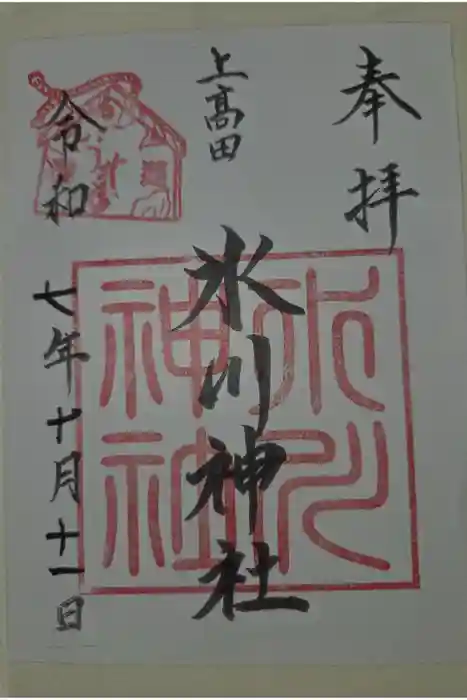 奉拝
上高田
氷川神社
令和
七年十月十一日
氷川
神社